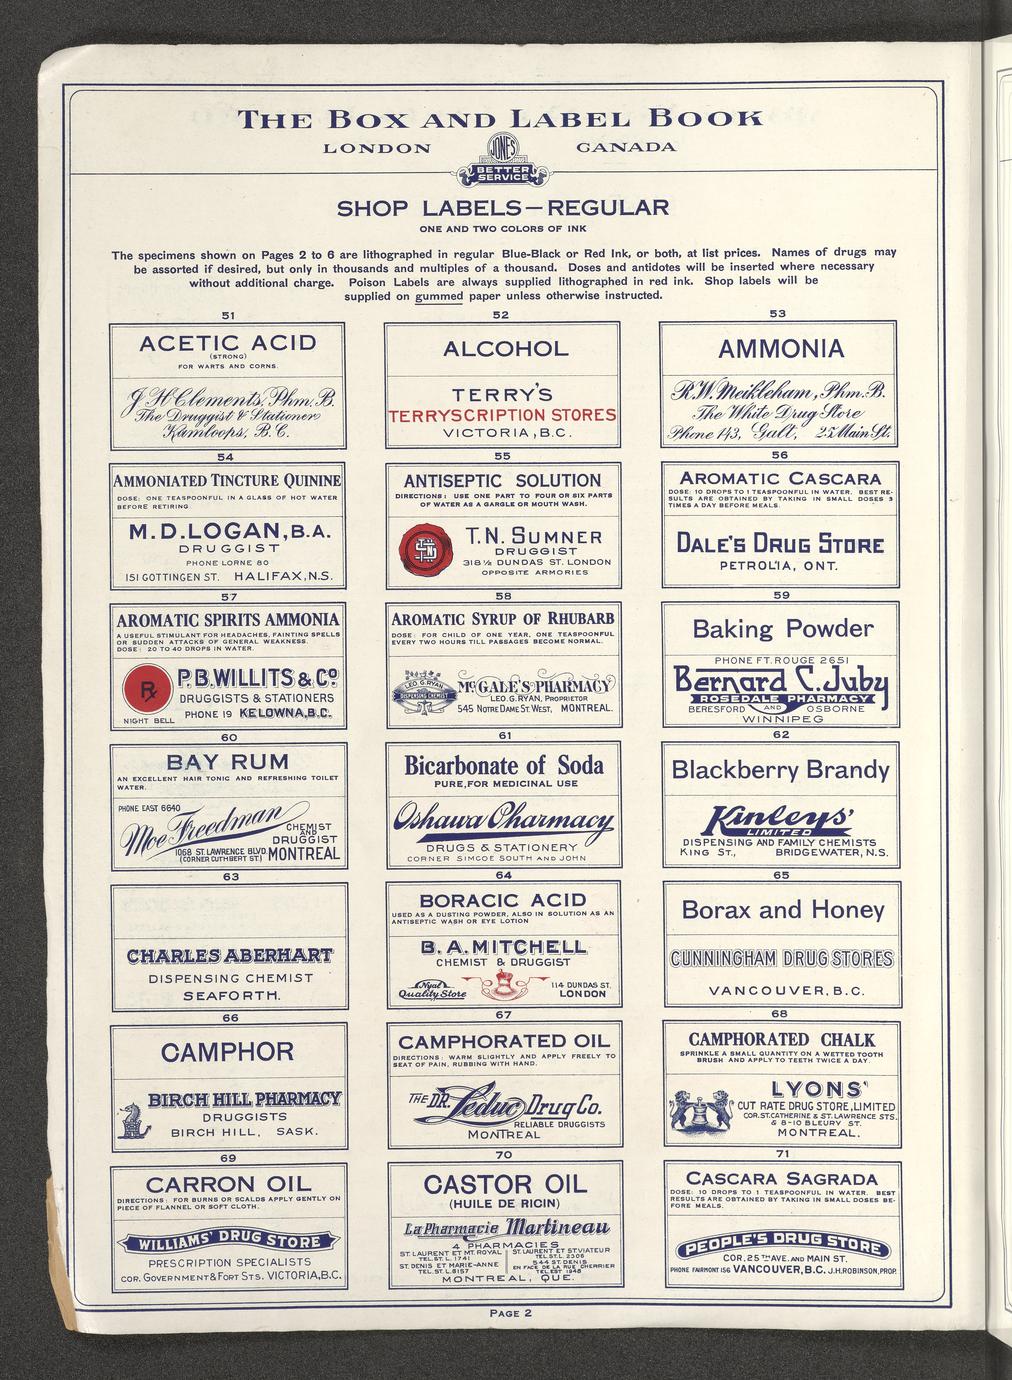 THE BOX AND LABEL BOOK
LONDON CANADA
JONES
BETTER
SERVICE
SHOP LABELS—REGULAR
ONE AND TWO COLORS OF INK
The specimens shown on Pages 2 to 6 are lithographed in regular Blue-Black or Red Ink, or both, at list prices. Names of drugs may
be assorted if desired, but only in thousands and multiples of a thousand. Doses and antidotes will be inserted where necessary
without additional charge. Poison Labels are always supplied lithographed in red ink. Shop labels will be
supplied on gummed paper unless otherwise instructed.
51
ACETIC ACID
(STRONG)
FOR WARTS AND CORNS.
J H Clements, Phm. B.
The Druggist & Stationer
Kamloops, B.C.
52
ALCOHOL
TERRY'S
TERRYSCRIPTION STORES
VICTORIA, B.C.
53
AMMONIA
R.W. Meikleham, Phm. B.
The White Drug Store
Phone 143, Galt, 25 Main St.
54
AMMONIATED TINCTURE QUININE
DOSE: ONE TEASPOONFUL IN A GLASS OF HOT WATER
BEFORE RETIRING
M.D. LOGAN, B.A.
DRUGGIST
PHONE LORNE 80
151 GOTTINGEN ST. HALIFAX, N.S.
55
ANTISEPTIC SOLUTION
DIRECTIONS: USE ONE PART TO FOUR OR SIX PARTS
OF WATER AS A GARGLE OR MOUTH WASH.
T.N. SUMNER
DRUGGIST
318½ DUNDAS ST. LONDON
OPPOSITE ARMORIES
56
AROMATIC CASCARA
DOSE: 10 DROPS TO 1 TEASPOONFUL IN WATER. BEST RE-
SULTS ARE OBTAINED BY TAKING IN SMALL DOSES 3
TIMES A DAY BEFORE MEALS.
DALE'S DRUG STORE
PETROLIA, ONT.
57
AROMATIC SPIRITS AMMONIA
A USEFUL STIMULANT FOR HEADACHES, FAINTING SPELLS
OR SUDDEN ATTACKS OF GENERAL WEAKNESS.
DOSE: 20 TO 40 DROPS IN WATER.
℞
NIGHT BELL
P.B. WILLITS & Co
DRUGGISTS & STATIONERS
PHONE 19 KELOWNA, B.C.
58
AROMATIC SYRUP OF RHUBARB
DOSE: FOR CHILD OF ONE YEAR, ONE TEASPOONFUL
EVERY TWO HOURS TILL PASSAGES BECOME NORMAL.
LEO. G. RYAN
DISPENSING CHEMIST
McGALE'S PHARMACY
LEO. G. RYAN, PROPRIETOR
545 NOTRE DAME ST. WEST, MONTREAL.
59
Baking Powder
PHONE FT. ROUGE 2651
Bernard C. Juby
ROSEDALE PHARMACY
BERESFORD AND OSBORNE
WINNIPEG
60
BAY RUM
AN EXCELLENT HAIR TONIC AND REFRESHING TOILET
WATER.
PHONE EAST 6640
Moe Freedman
CHEMIST
AND
DRUGGIST
1068 ST. LAWRENCE BLVD.
(CORNER CUTHBERT ST.) MONTREAL
61
Bicarbonate of Soda
PURE, FOR MEDICINAL USE
Oshawa Pharmacy
DRUGS & STATIONERY
CORNER SIMCOE SOUTH AND JOHN
62
Blackberry Brandy
Kinleys'
LIMITED
DISPENSING AND FAMILY CHEMISTS
KING ST., BRIDGEWATER, N.S.
63
CHARLES ABERHART
DISPENSING CHEMIST
SEAFORTH.
64
BORACIC ACID
USED AS A DUSTING POWDER, ALSO IN SOLUTION AS AN
ANTISEPTIC WASH OR EYE LOTION
B. A. MITCHELL
CHEMIST & DRUGGIST
Nyal
Quality Store
114 DUNDAS ST.
LONDON
65
Borax and Honey
CUNNINGHAM DRUG STORES
VANCOUVER, B.C.
66
CAMPHOR
BIRCH HILL PHARMACY
DRUGGISTS
BIRCH HILL, SASK.
67
CAMPHORATED OIL
DIRECTIONS: WARM SLIGHTLY AND APPLY FREELY TO
SEAT OF PAIN, RUBBING WITH HAND.
THE DR. Leduc Drug Co.
RELIABLE DRUGGISTS
MONTREAL
68
CAMPHORATED CHALK
SPRINKLE A SMALL QUANTITY ON A WETTED TOOTH
BRUSH AND APPLY TO TEETH TWICE A DAY.
LYONS'
CUT RATE DRUG STORE, LIMITED
COR. ST. CATHERINE & ST. LAWRENCE STS.
& 8-10 BLEURY ST.
MONTREAL.
69
CARRON OIL
DIRECTIONS: FOR BURNS OR SCALDS APPLY GENTLY ON
PIECE OF FLANNEL OR SOFT CLOTH.
WILLIAMS' DRUG STORE
PRESCRIPTION SPECIALISTS
COR. GOVERNMENT & FORT STS. VICTORIA, B.C.
70
CASTOR OIL
(HUILE DE RICIN)
La Pharmacie Martineau
4 PHARMACIES
ST. LAURENT ET MT. ROYAL
TEL. ST. L. 1741
ST. DENIS ET MARIE-ANNE
TEL. ST. L. 8157
ST. LAURENT ET ST. VIATEUR
TEL. ST. L. 2306
544 ST. DENIS
EN FACE DE LA RUE CHERRIER
TEL. EST 1948
MONTREAL, QUE.
71
CASCARA SAGRADA
DOSE: 10 DROPS TO 1 TEASPOONFUL IN WATER. BEST
RESULTS ARE OBTAINED BY TAKING IN SMALL DOSES BE-
FORE MEALS.
PEOPLE'S DRUG STORE
COR. 25TH AVE. AND MAIN ST.
PHONE FAIRMONT 156 VANCOUVER, B.C. J.H. ROBINSON, PROP.
PAGE 2